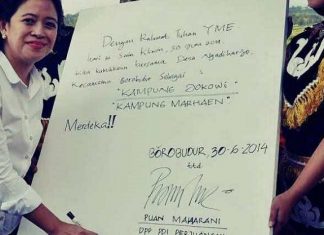 Dengan Rahmat Tuhan YME
hari ini Senin Kliwon, 30 Juni 2014
kita bersama Desa Ngadiharjo
Kecamatan Borobudur Sebagai :
"KAMPUNG JOKOWI"
"KAMPUNG MARHAEN"
Merdeka!!
BOROBUDUR, 30-6-2014
ttd
PUAN MAHARANI
DPP PDI PERJUANGAN